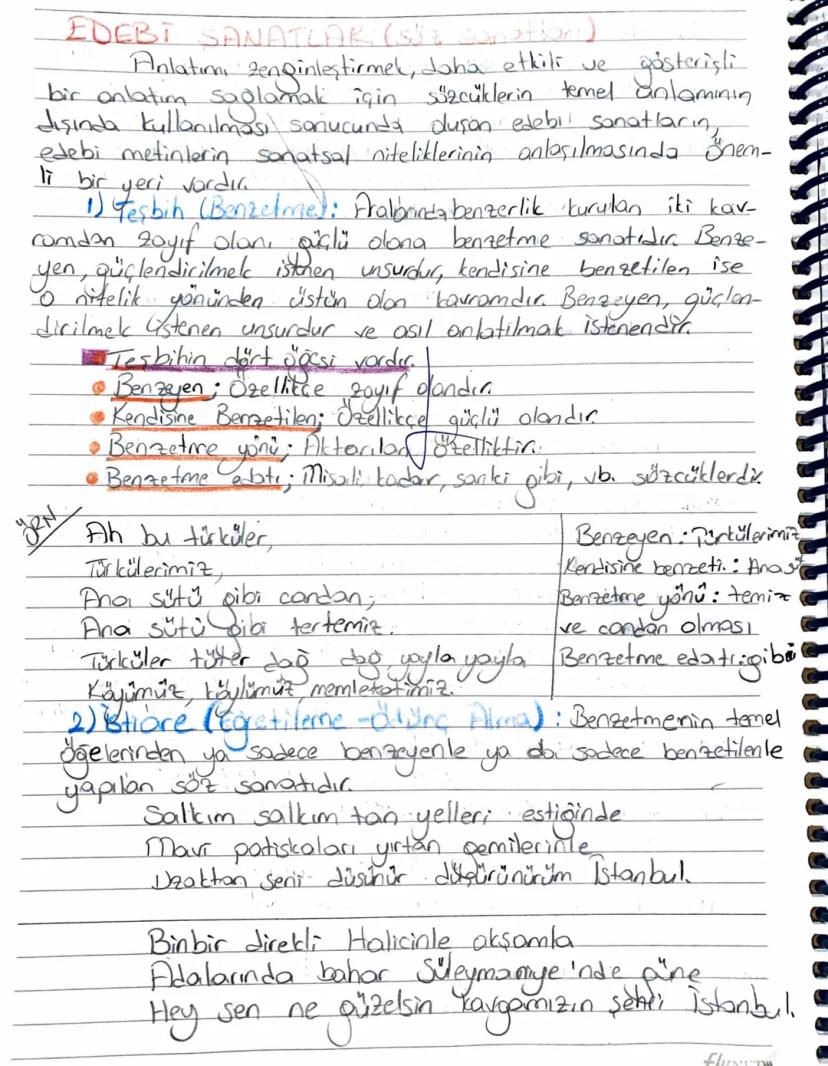 EDEBİ SANATLAR (söz sanatları)
Anlatımı zenginleştirmek, daha etkili ve gösterişli
bir anlatım sağlamak için sözcüklerin temel anlamının
dışında kullanılması sonucunda oluşan edebi sanatların,
edebi metinlerin sanatsal niteliklerinin anlaşılmasında önem-
li bir yeri vardır.
1) Teşbih (Benzetme): Aralarında benzerlik kurulan iki kav-
ramdan zayıf olanı güçlü olana benzetme sanatıdır. Benze-
yen, güçlendirilmek istnen unsurdur, kendisine benzetilen ise
o nitelik yönünden üstün olan kavramdır. Benzeyen, güçlen-
dirilmek istenen unsurdur ve asıl anlatılmak istenendir.
Teşbihin dört öğesi vardır.
Benzeyen; Özellikçe zayıf olandır.
Kendisine Benzetilen; Özellikçe güçlü olandır.
Benzetme yönü; Aktarılan özelliktir.
Benzetme edatı; Misali, kadar, sanki gibi, vb. sözcüklerdir.
ÖRN
Ah bu türküler,
Türkülerimiz,
Ana sütü gibi candan;
Ana sütü gibi tertemiz.
Türküler tüter dağ dağ, yayla yayla
Köyümüz, köylümüz, memleketimiz.
Benzeyen: Türkülerimiz
Kendisine benzeti.: Ana sü
Benzetme yönü: temiz
ve candan olması
Benzetme edatı: gibi
2) İstiare (Eğretileme - Ödünç Alma): Benzetmenin temel
öğelerinden ya sadece benzeyenle ya da sadece benzetilenle
yapılan söz sanatıdır.
Salkım salkım tan yelleri estiğinde
Mavi patiskaları yırtan gemilerinle
Uzaktan seni düşünür düşünürüm İstanbul.
Binbir direkli Halicinle akşamla
Adalarında bahar Süleymaniye'nde güne
Hey sen ne güzelsin kavgamızın şehri İstanbul.